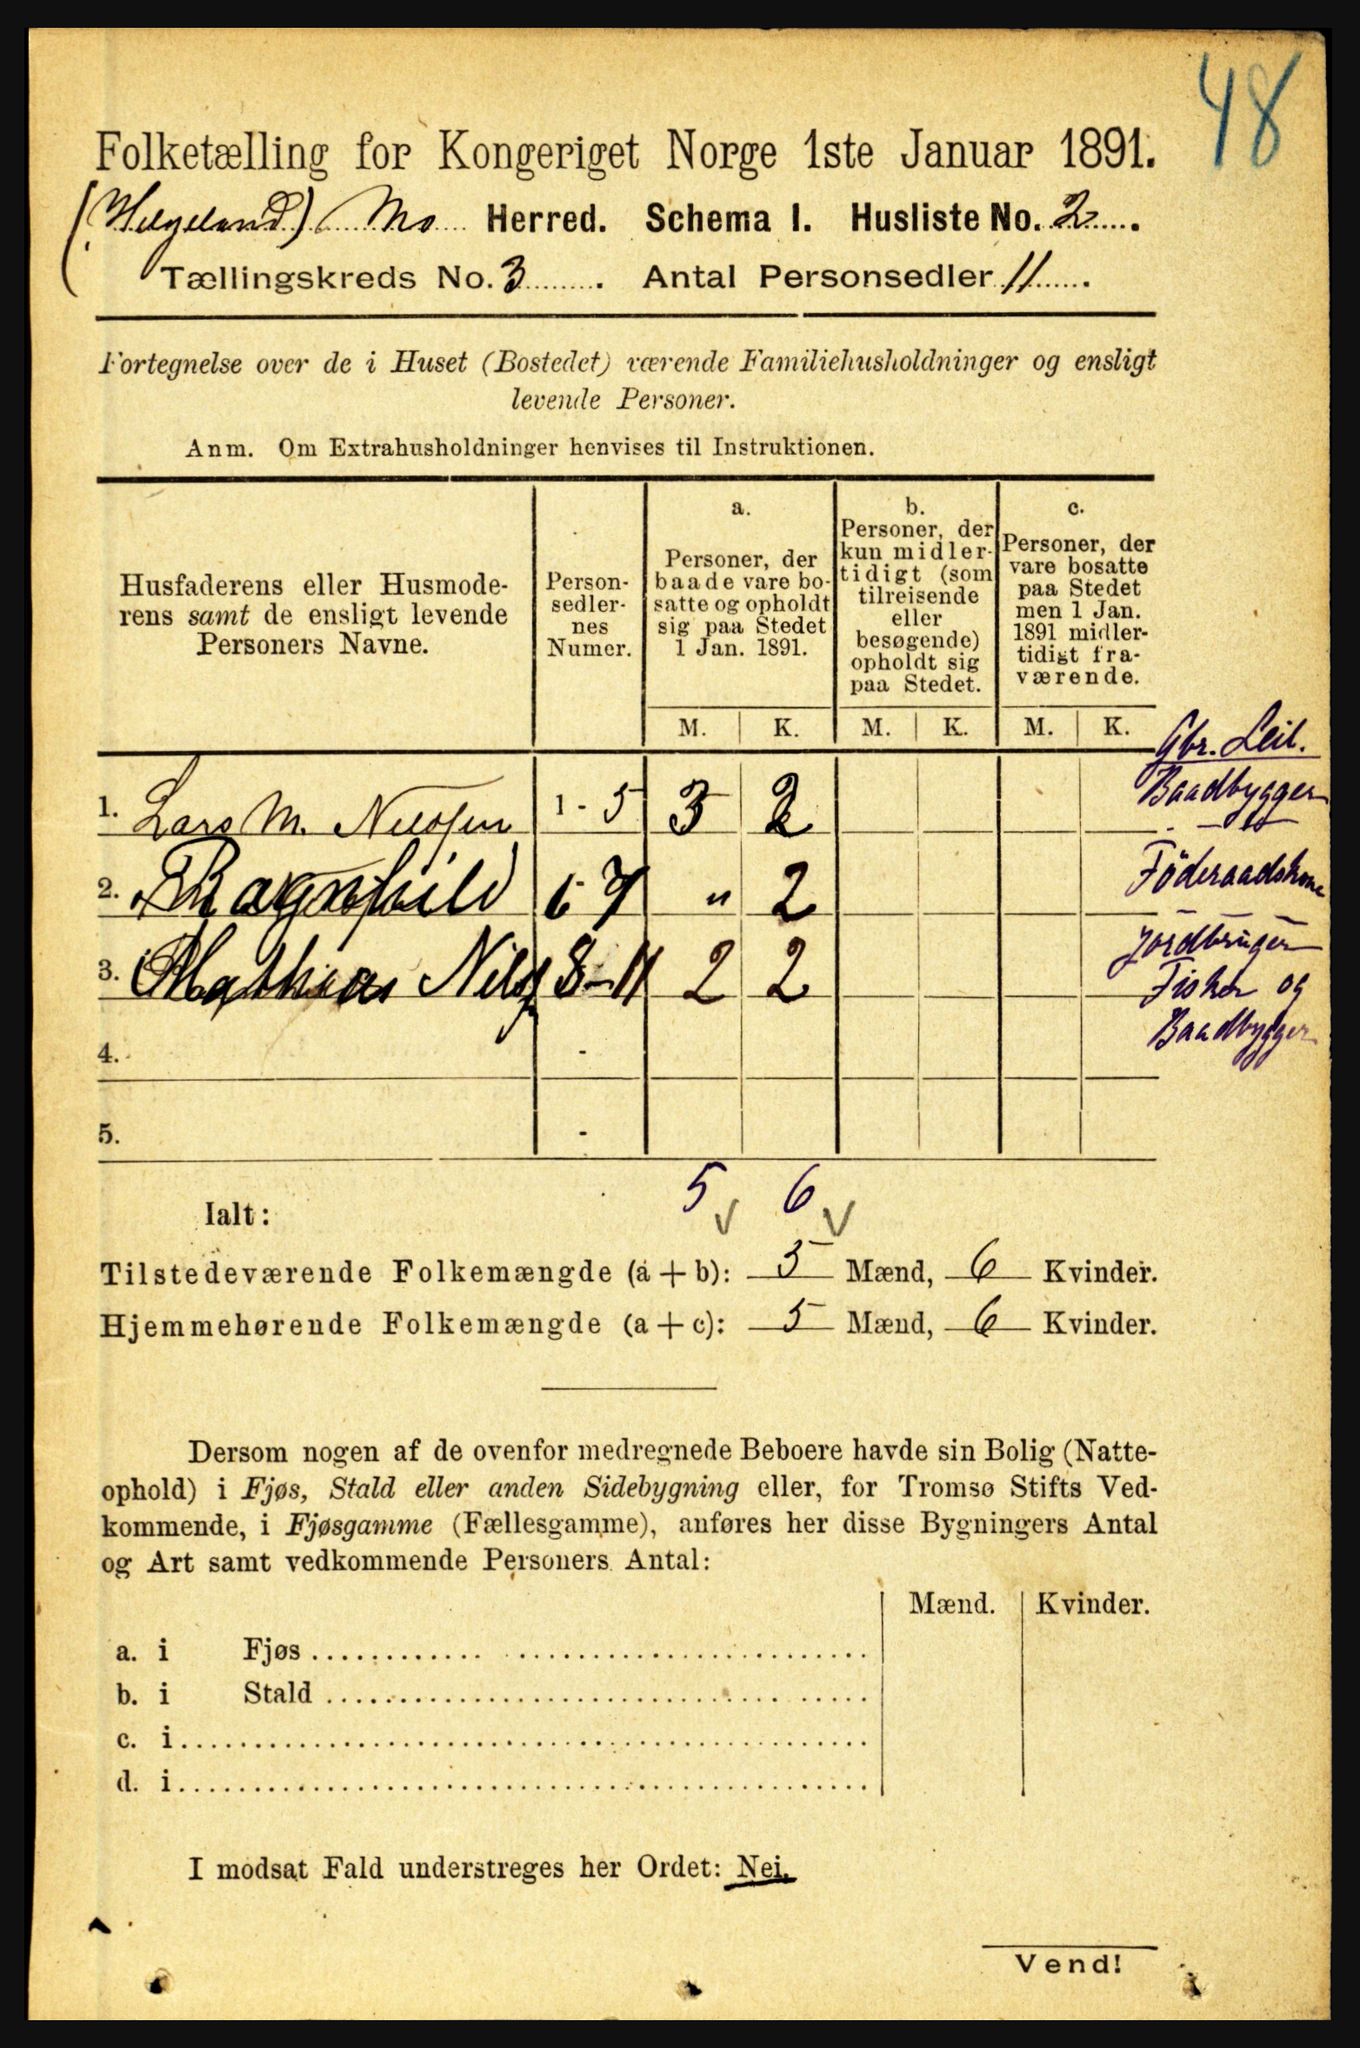 48
Folketælling for Kongeriget Norge 1ste Januar 1891.
(Helgeland) Mo Herred. Schema I. Husliste No. 2.
Tællingskreds No. 3. Antal Personsedler 11.
Fortegnelse over de i Huset (Bostedet) værende Familiehusholdninger og ensligt
levende Personer.
Anm. Om Extrahusholdninger henvises til Instruktionen.
Husfaderens eller Husmode-
rens samt de ensligt levende
Personers Navne.
Person-
sedler-
nes
Numer.
a.
Personer, der
baade vare bo-
satte og opholdt
sig paa Stedet
1 Jan. 1891.
b.
Personer, der
kun midler-
tidigt (som
tilreisende
eller
besøgende)
opholdt sig
paa Stedet.
c.
Personer, der
vare bosatte
paa Stedet
men 1 Jan.
1891 midler-
tidigt fra-
værende.
M. K. M. K. M. K.
Gbr. Leil.
Baadbygger
1. Lars M. Nilssen 1 - 5 3 2
2. Ragnhild 6 7 " 2 Föderaadskone
3. Mathias Nils 8 - 11 2 2 Jordbruger
Fisker og
Baadbygger
4. -
5. -
Ialt: 5 6
Tilstedeværende Folkemængde (a + b): 5 Mænd, 6 Kvinder.
Hjemmehørende Folkemængde (a + c): 5 Mænd, 6 Kvinder.
Dersom nogen af de ovenfor medregnede Beboere havde sin Bolig (Natte-
ophold) i Fjøs, Stald eller anden Sidebygning eller, for Tromsø Stifts Ved-
kommende, i Fjøsgamme (Fællesgamme), anføres her disse Bygningers Antal
og Art samt vedkommende Personers Antal:
Mænd. Kvinder.
a. i Fjøs
b. i Stald
c. i
d. i
I modsat Fald understreges her Ordet: Nei.
Vend!